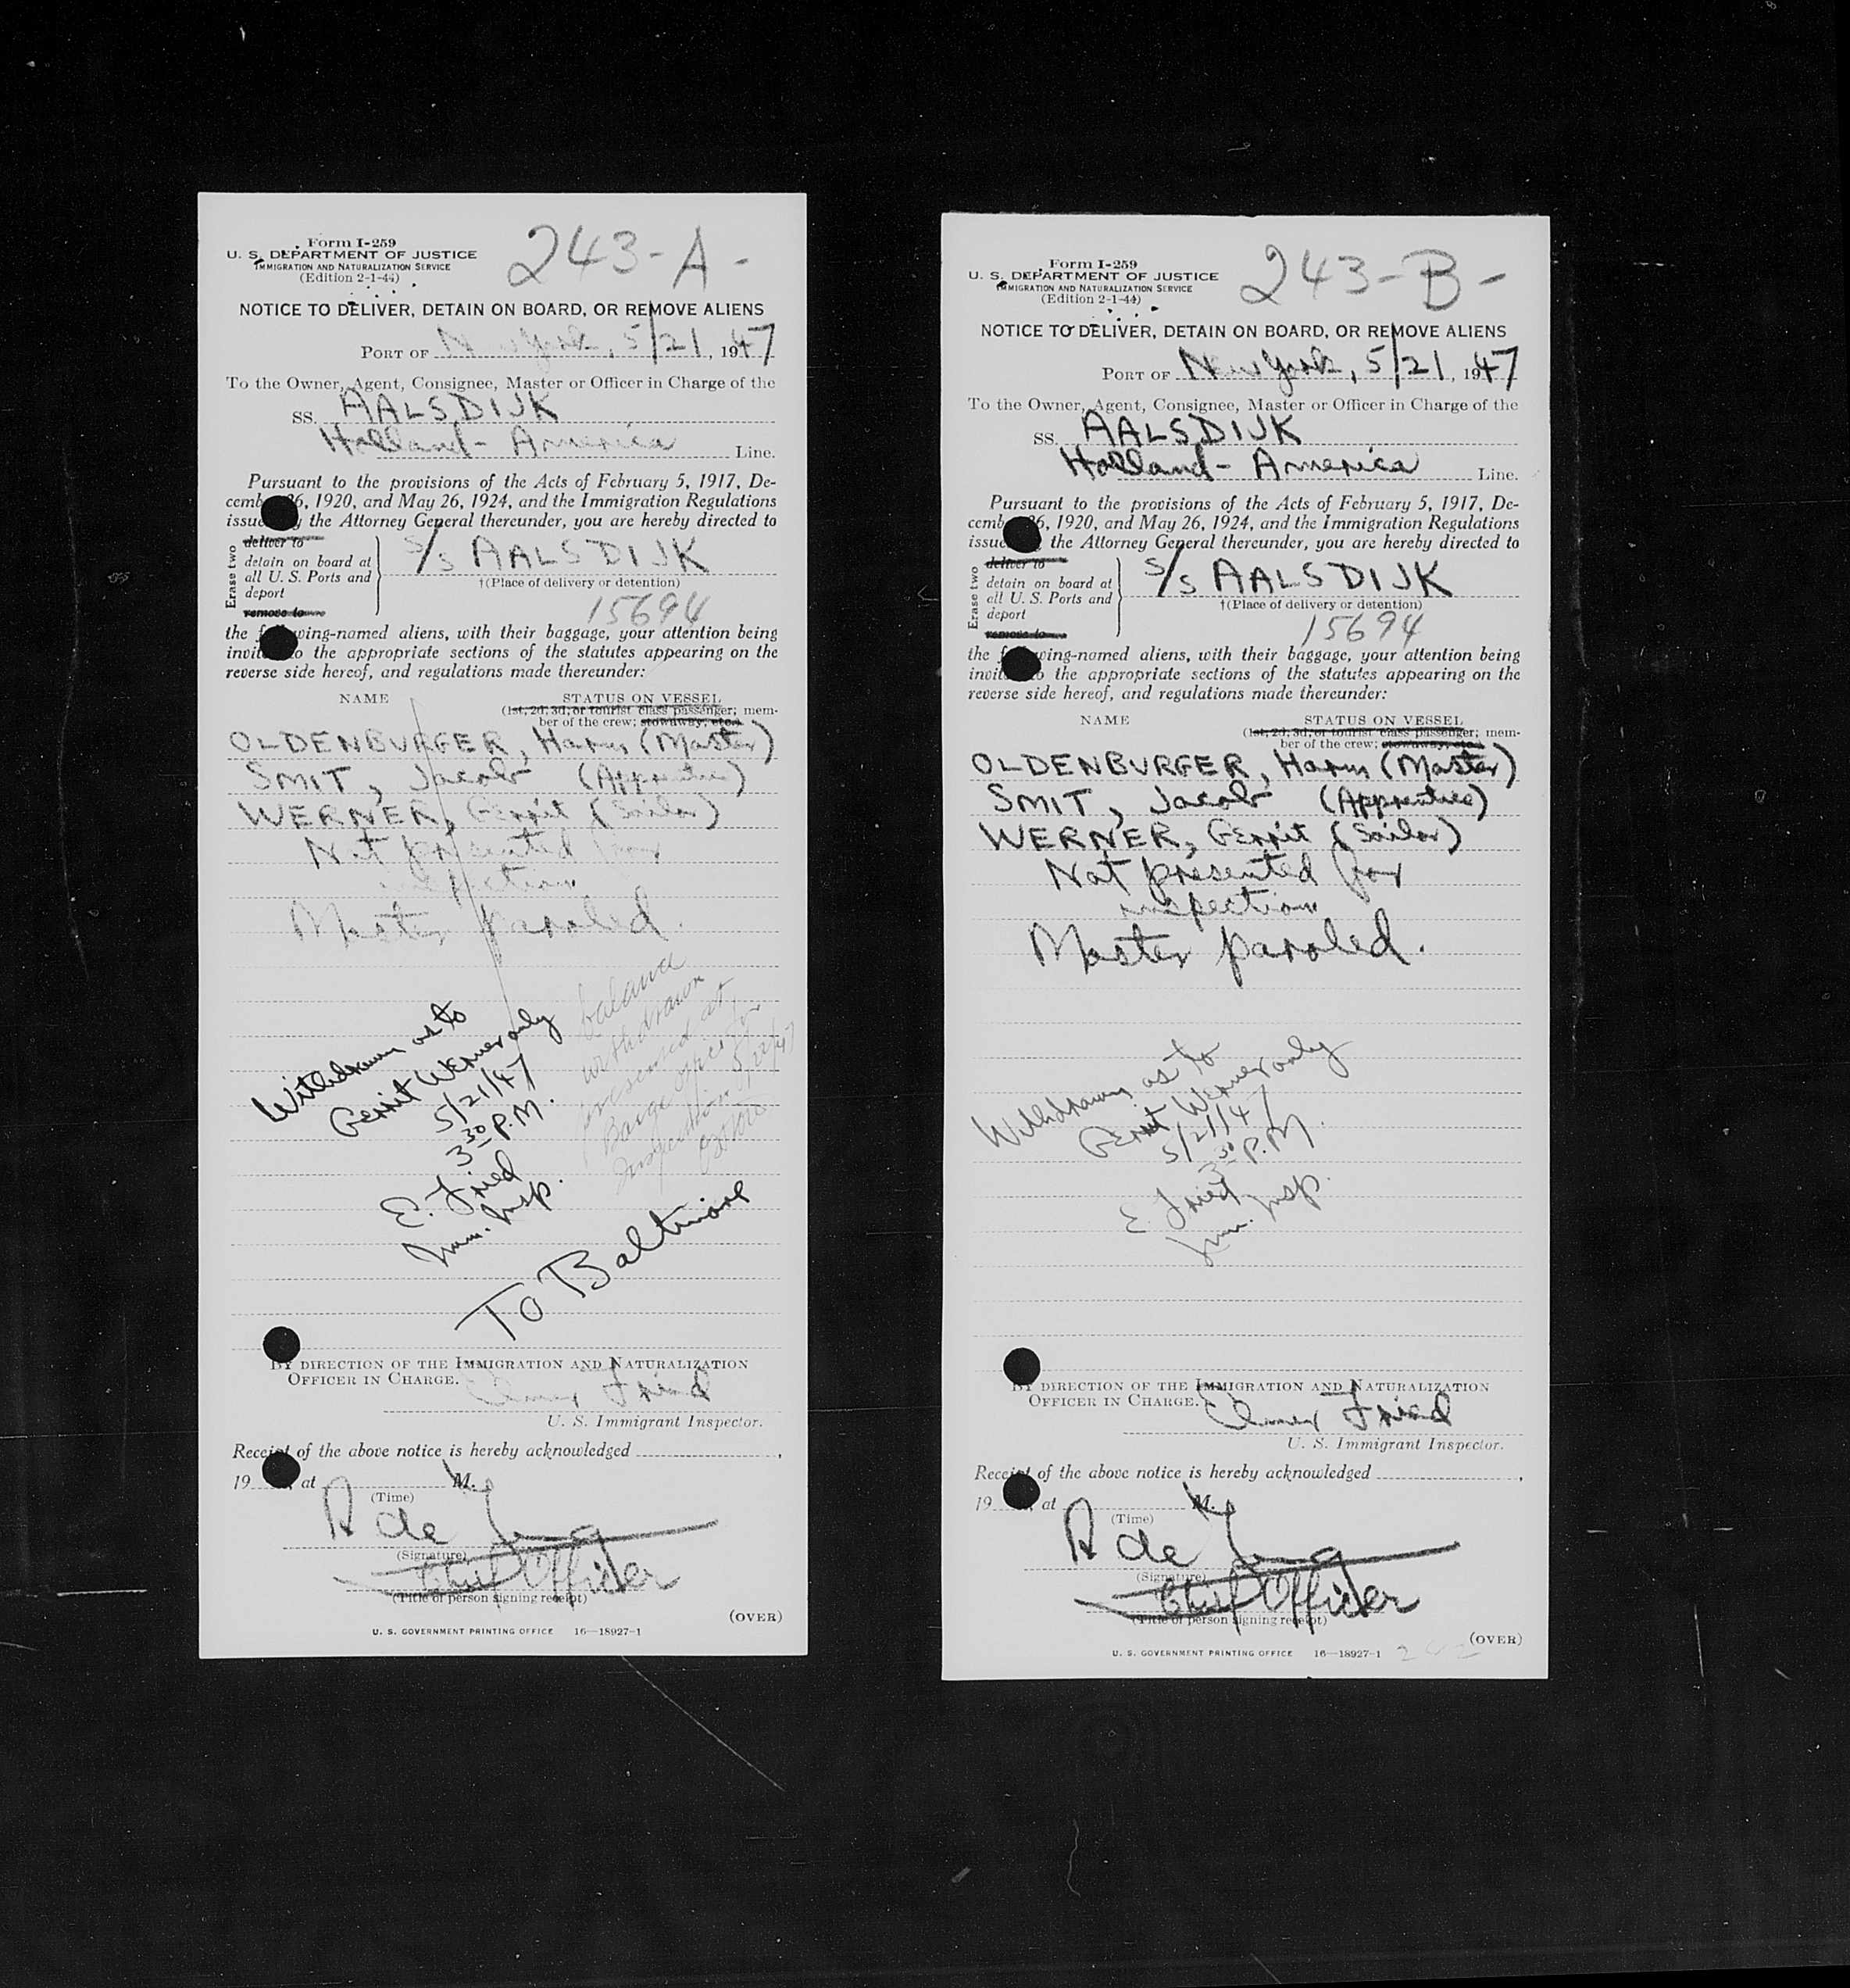 243-A-
Form I-259
U. S. DEPARTMENT OF JUSTICE
IMMIGRATION AND NATURALIZATION SERVICE
(Edition 2-1-44)
NOTICE TO DELIVER, DETAIN ON BOARD, OR REMOVE ALIENS
PORT OF New York, 5/21, 1947
To the Owner, Agent, Consignee, Master or Officer in Charge of the
SS. AALSDIJK
Holland-America Line.
Pursuant to the provisions of the Acts of February 5, 1917, De-
cemb 26, 1920, and May 26, 1924, and the Immigration Regulations
issue y the Attorney General thereunder, you are hereby directed to
Erase two
deliver to
detain on board at
all U. S. Ports and
deport
remove to
S/S AALSDIJK
†(Place of delivery or detention)
15694
the f wing-named aliens, with their baggage, your attention being
invit o the appropriate sections of the statutes appearing on the
reverse side hereof, and regulations made thereunder:
NAME STATUS ON VESSEL
(1st, 2d, 3d, or tourist class passenger; mem-
ber of the crew; stowaway, etc.)
OLDENBURGER, Harm (Master)
SMIT, Jacob (Apprentice)
WERNER, Gerrit (Sailor)
Not presented for
inspection
Master paroled.
Withdrawn as to
Gerrit Werner only
5/21/47
3 30 P.M.
E. Fried
Imm. Insp.
balance
withdrawn
presented at
Barge Office for
Inspection 5/22/47
To Baltimore
BY DIRECTION OF THE IMMIGRATION AND NATURALIZATION
OFFICER IN CHARGE.
Elmer Fried
U. S. Immigrant Inspector.
Receipt of the above notice is hereby acknowledged ,
19 at M.
(Time)
A de Jong
(Signature)
Chief Officer
(Title of person signing receipt)
(OVER)
U. S. GOVERNMENT PRINTING OFFICE 16—18927-1
243-B-
Form I-259
U. S. DEPARTMENT OF JUSTICE
IMMIGRATION AND NATURALIZATION SERVICE
(Edition 2-1-44)
NOTICE TO DELIVER, DETAIN ON BOARD, OR REMOVE ALIENS
PORT OF New York, 5/21, 1947
To the Owner, Agent, Consignee, Master or Officer in Charge of the
SS. AALSDIJK
Holland-America Line.
Pursuant to the provisions of the Acts of February 5, 1917, De-
cemb 26, 1920, and May 26, 1924, and the Immigration Regulations
issue the Attorney General thereunder, you are hereby directed to
Erase two
deliver to
detain on board at
all U. S. Ports and
deport
remove to
S/S AALSDIJK
†(Place of delivery or detention)
15694
the f wing-named aliens, with their baggage, your attention being
invit o the appropriate sections of the statutes appearing on the
reverse side hereof, and regulations made thereunder:
NAME STATUS ON VESSEL
(1st, 2d, 3d, or tourist class passenger; mem-
ber of the crew; stowaway, etc.)
OLDENBURGER, Harm (Master)
SMIT, Jacob (Apprentice)
WERNER, Gerrit (Sailor)
Not presented for
inspection
Master paroled.
Withdrawn as to
Gerrit Werner only
5/21/47
3 30 P.M.
E. Fried
Imm. Insp.
BY DIRECTION OF THE IMMIGRATION AND NATURALIZATION
OFFICER IN CHARGE.
Elmer Fried
U. S. Immigrant Inspector.
Receipt of the above notice is hereby acknowledged ,
19 , at M.
(Time)
A de Jong
(Signature)
Chief Officer
(Title of person signing receipt)
(OVER)
U. S. GOVERNMENT PRINTING OFFICE 16—18927-1